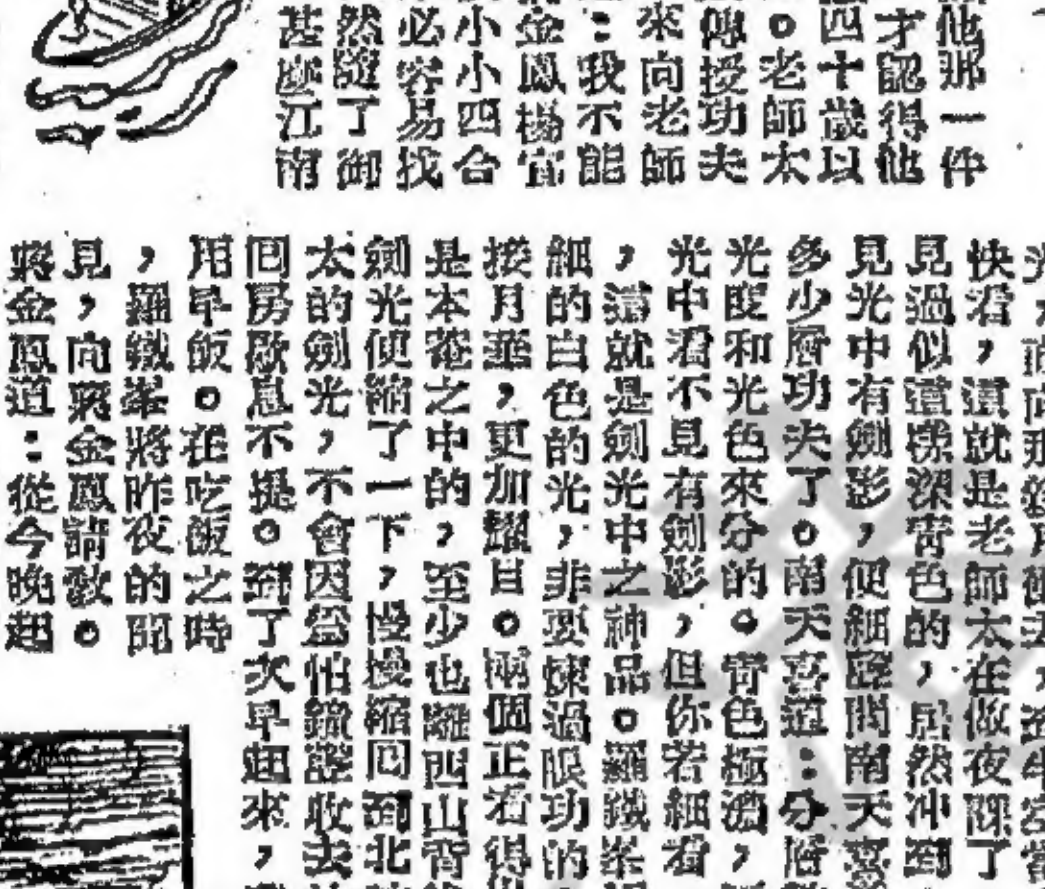 他那一件
才認得他
四十歲以
。老師太
傳授功夫
來向老師
：我不能
金鳳楊宜
小小四合
必容易找
然隨了御
甚麼江南
快看，這就是老師太在做夜課了
見過似這樣深青色的，居然冲到
見光中有劍影，便細聲問南天喜
多少層功夫了。南天喜道：分階
光度和光色來分的。青色極濃，
光中看不見有劍影，但你若細看
，這就是劍光中之神品。羅鐵峯
細的白色的光，非要煉過眼功的
接月華，更加耀目。兩個正看得
是本菴之中的，至少也離西山背
劍光便縮了一下，慢慢縮囘到北
太的劍光，不會因為怕錯認收去
囘房歇息不提。到了次早起來，
用早飯。在吃飯之時
，羅鐵峯將昨夜的所
見，向蔣金鳳請敎。
蔣金鳳道：從今晚起